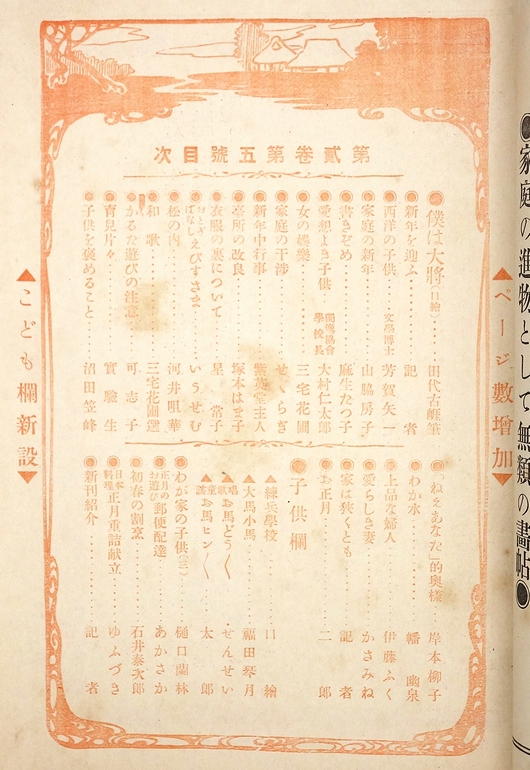 ●家庭の進物として無類の畵帖●
▲ページ數增加▼
第貳卷第五號目次
●僕は大將(口繪)……田代古崖筆
●新年を迎ふ……記者
●西洋の子供……文學博士 芳賀矢一
●家庭の新年……山脇房子
●書きぞめ……麻生たつ子
●愛想よき子供……學校長 大村仁太郎
●女の娯樂……三宅花圃
●家庭の干渉……せゝらぎ
●新年中行事……紫英堂主人
●臺所の改良……塚本はま子
●衣服の裏について……星常子
●おとぎばなしえびすさま……いうせむ
●松の内……河井咀華
●和歌……三宅花圃選
●かるた遊びの注意……可志子
●育兒片々……實驗生
●子供を褒めること……沼田笠峰
●「ねえあなた」的奥樣……岸本柳子
●わか水……幽泉
●上品な婦人……伊藤ふく
●愛らしき妻……かさみね
●家は狹くとも……記者
●お正月……二郎
●子供欄
▲練兵學校……口繪
▲大馬小馬……福田琴月
▲唱歌お馬どう〱……せんせい
▲童謠お馬ヒン〱……太郎
●わが家の子供(三)……樋口蘭林
●正月のお遊び郵便配達……あかさか
●初春の割烹……石井泰次郎
●日本料理正月重詰献立……ゆふづき
●新刊紹介……記者
▲こども欄新設▼